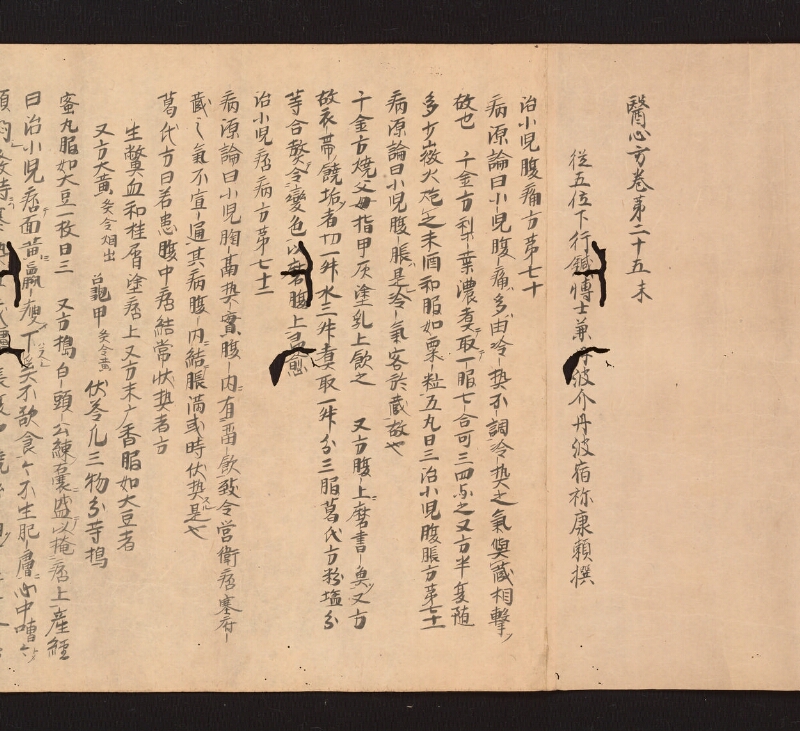 醫心方卷第二十五末
従五位下行鍼博士兼丹波介丹波宿祢康頼撰
治小兒腹痛方第七十
病源論曰小兒腹痛多由冷熱不調冷熱之氣與藏相擊
故也 千金方 葉濃煮取一服七合可三四与之又方半夏随
多少 火炮之末酒和服如粟粒五丸日三治小兒腹脹方第七十一
病源論曰小兒腹脹是冷氣客於藏故也
千金方燒父母指甲灰塗乳上飲之 又方腹上磨書魚又方
故衣帯 垢者切一舛水三舛煮取一舛分三服葛氏方粉塩分
等合熬令變色以磨腹上 愈
治小兒痞病方第七十二
病源論曰小兒胸膈熱實腹内有留飲致令営衛痞塞府
藏之氣不宜通其病腹内結脹滿或時伏熱是也
葛氏方曰若患腹中痞結常伏熱者方
生鱉血和桂屑塗痞上又方末广香服如大豆者
又方大黄炙令烟出 甲炙令黄 伏苓凡三物分等搗
蜜丸服如大豆一枚日三 又方搗白頭公練囊盛以掩痞上産經
曰治小兒痞面黄羸瘦丁奚不欲食々不生肥膚心中嘈々